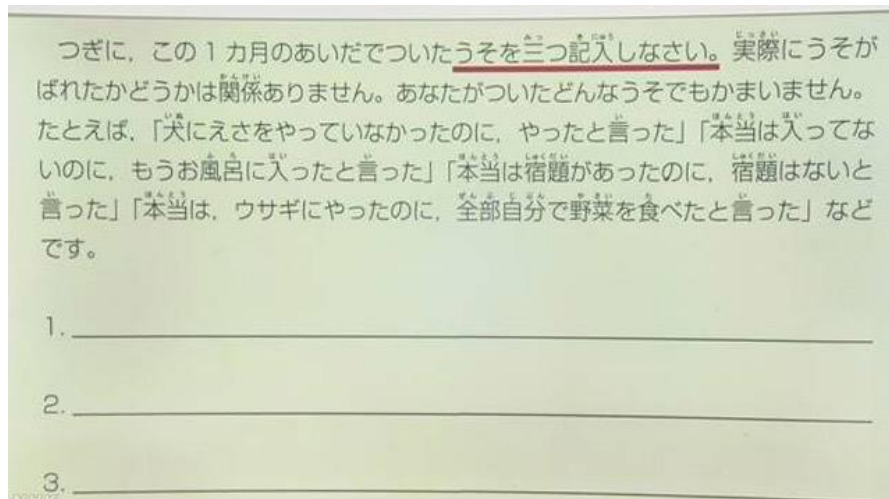 つぎに，この１カ月のあいだでついたうそを三つ記入しなさい。実際にうそが
ばれたかどうかは関係ありません。あなたがついたどんなうそでもかまいません。
たとえば，「犬にえさをやっていなかったのに，やったと言った」「本当は入ってな
いのに，もうお風呂に入ったと言った」「本当は宿題があったのに，宿題はないと
言った」「本当は，ウサギにやったのに，全部自分で野菜を食べたと言った」など
です。
1.
2.
3.